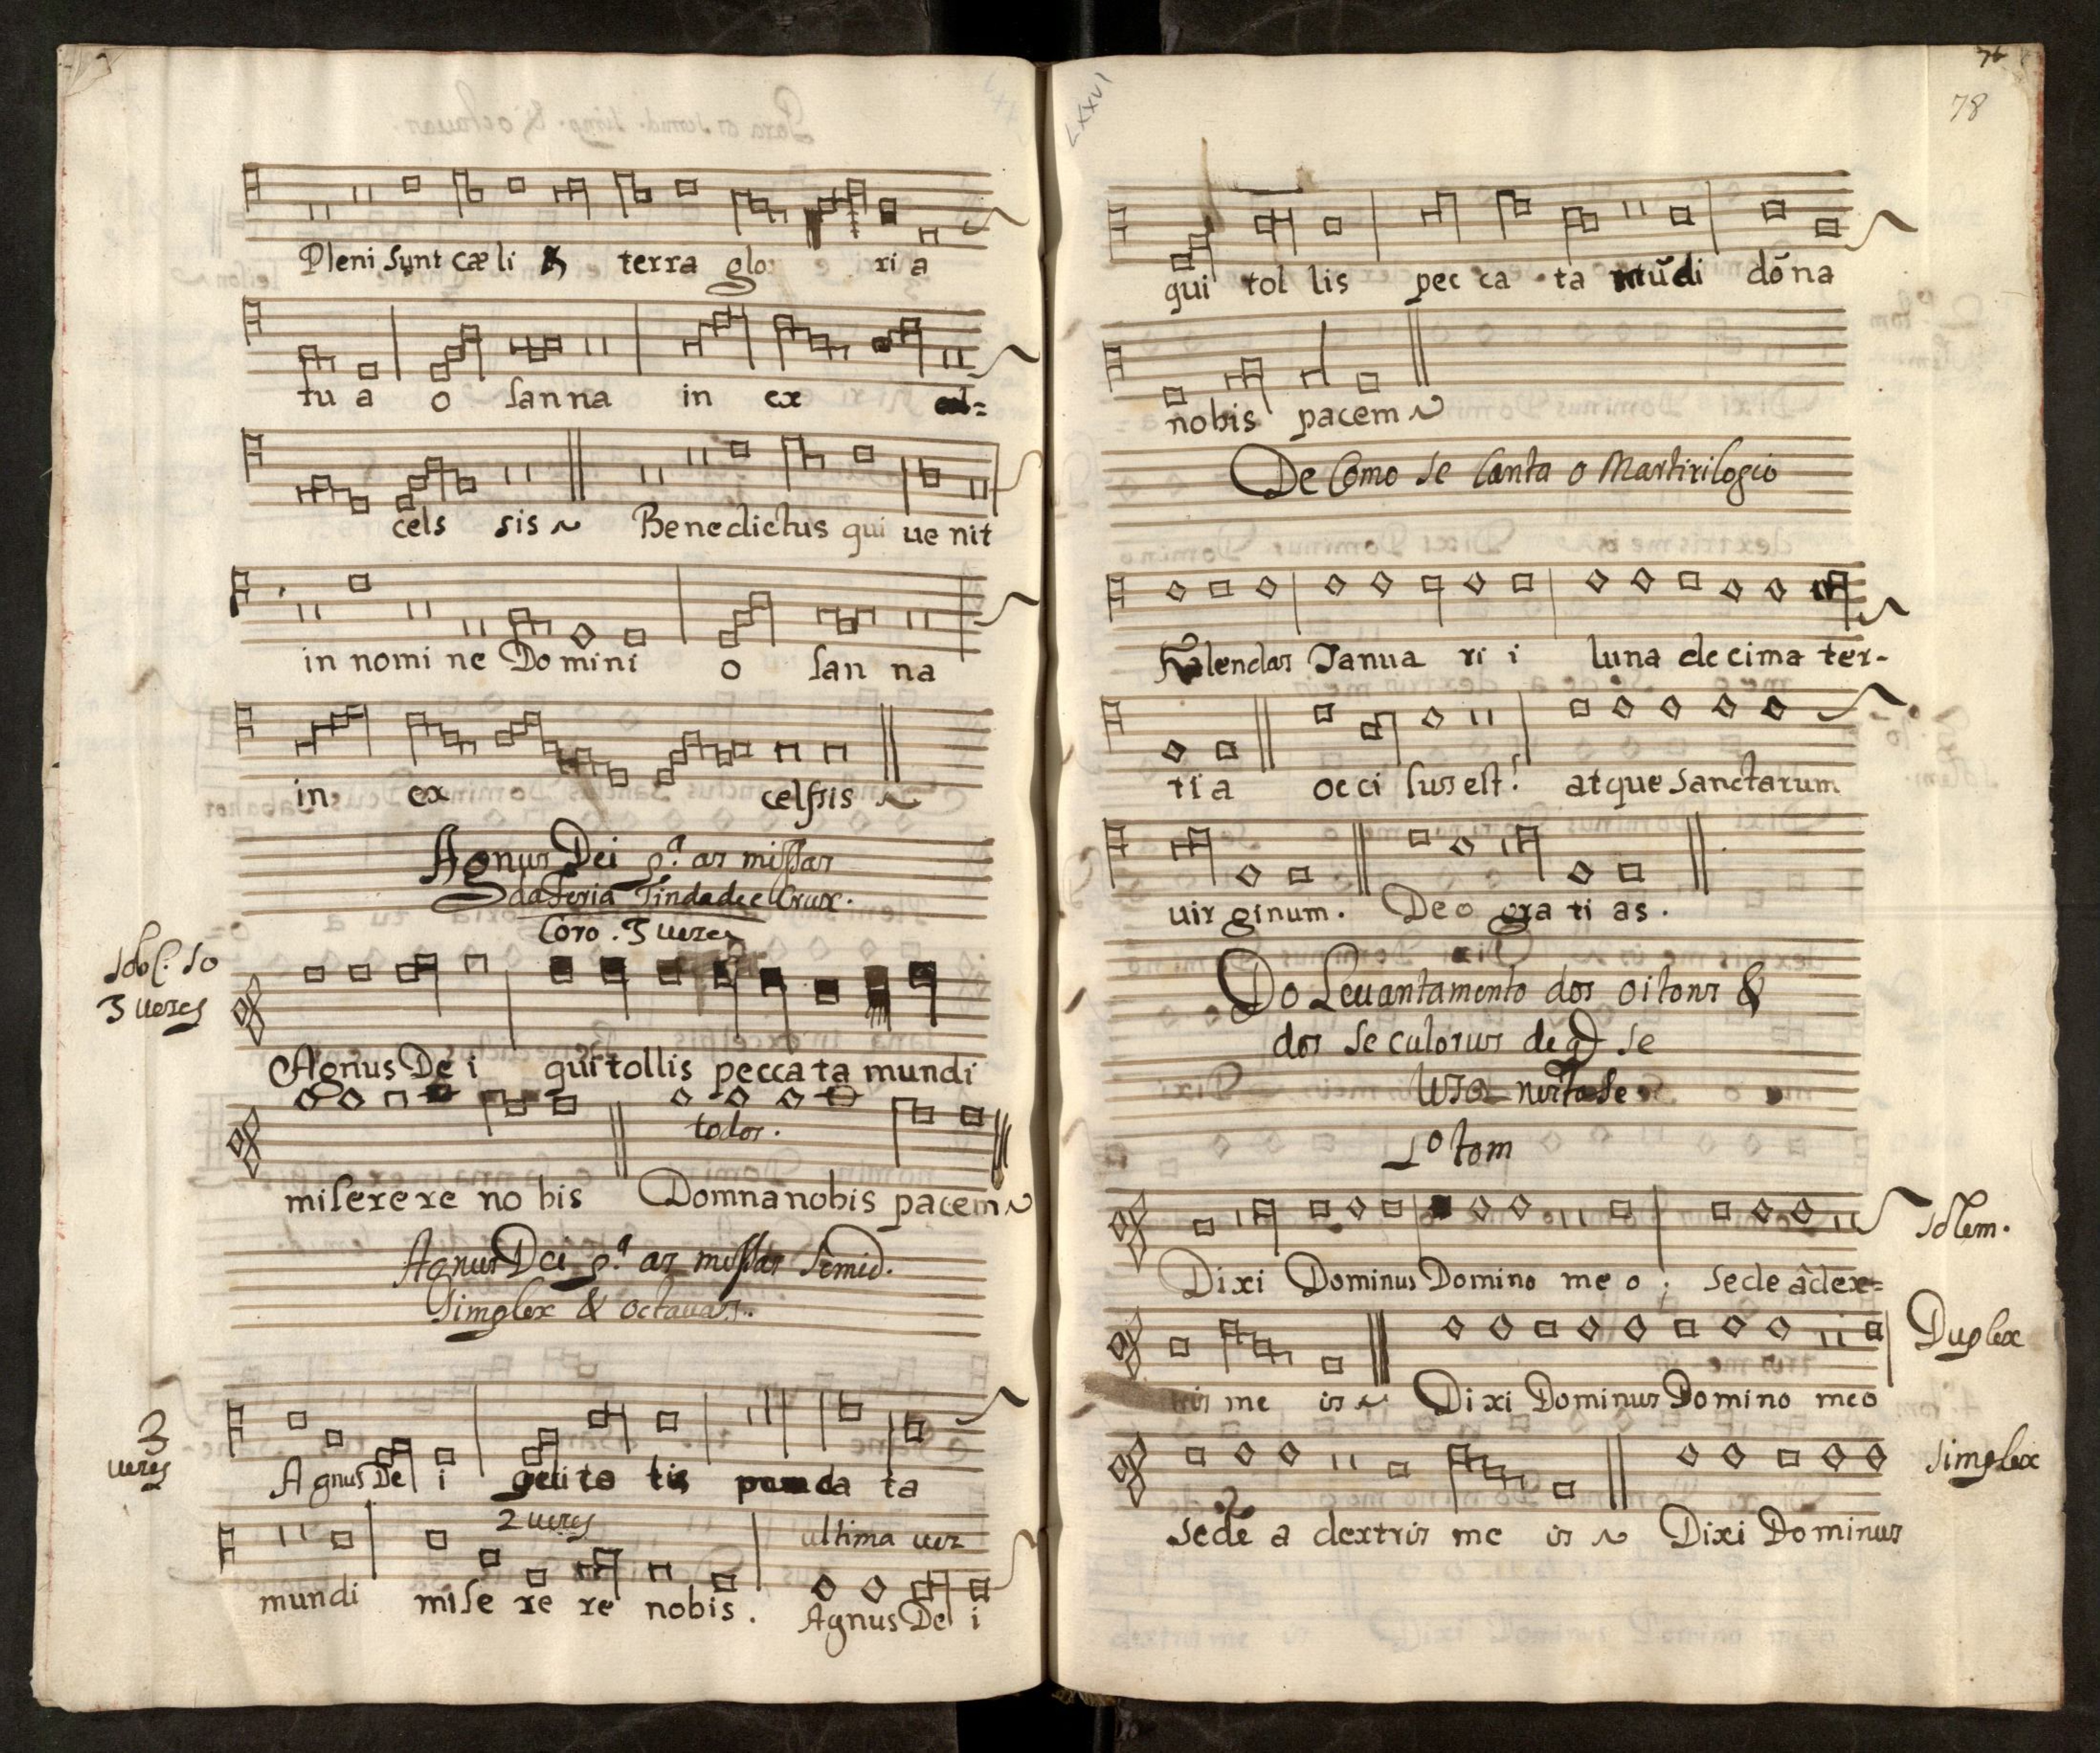 Pleni sunt cæli & terra glo ri a
tu a o san na in ex cel=
cels sis ~ Benedictus qui ue nit
in nomi ne Do mini o san na
in ex celssis ~
Agnus Dei pª as missas
da feria
Coro. 3 uezes
Sobl. so
3 uezes
Agnus De i qui tollis pecca ta mundi
todos.
miserere no bis Domna nobis pacem ~
Agnus Dei pª as missas semid.
simplex & octauas.
3
uezes
A gnus De i ta
2 uezes ultima uez
mundi mise re re nobis. Agnus De i
76
78
LXXVI
qui tol lis pec ca ta mũdi dõ na
nobis pacem ~
De Como se Canta o Martirilogio
Kalendas Janua ri i luna decima ter-
ti a occi sus est! atque sanctarum
uir ginum. Deo gra ti as.
Do Leuantamento dos oitons &
dos seculorus de q se
uza nesta se
1º tom
Dixi Dominus Domino me o ; sede â dex= Solem.
tris me is ~ Dixi Dominus Domino meo Duplex
sede a dextris me is ~ Dixi Dominus simplex